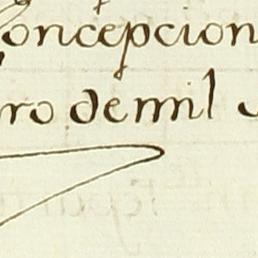 Concepcion
ro de mil